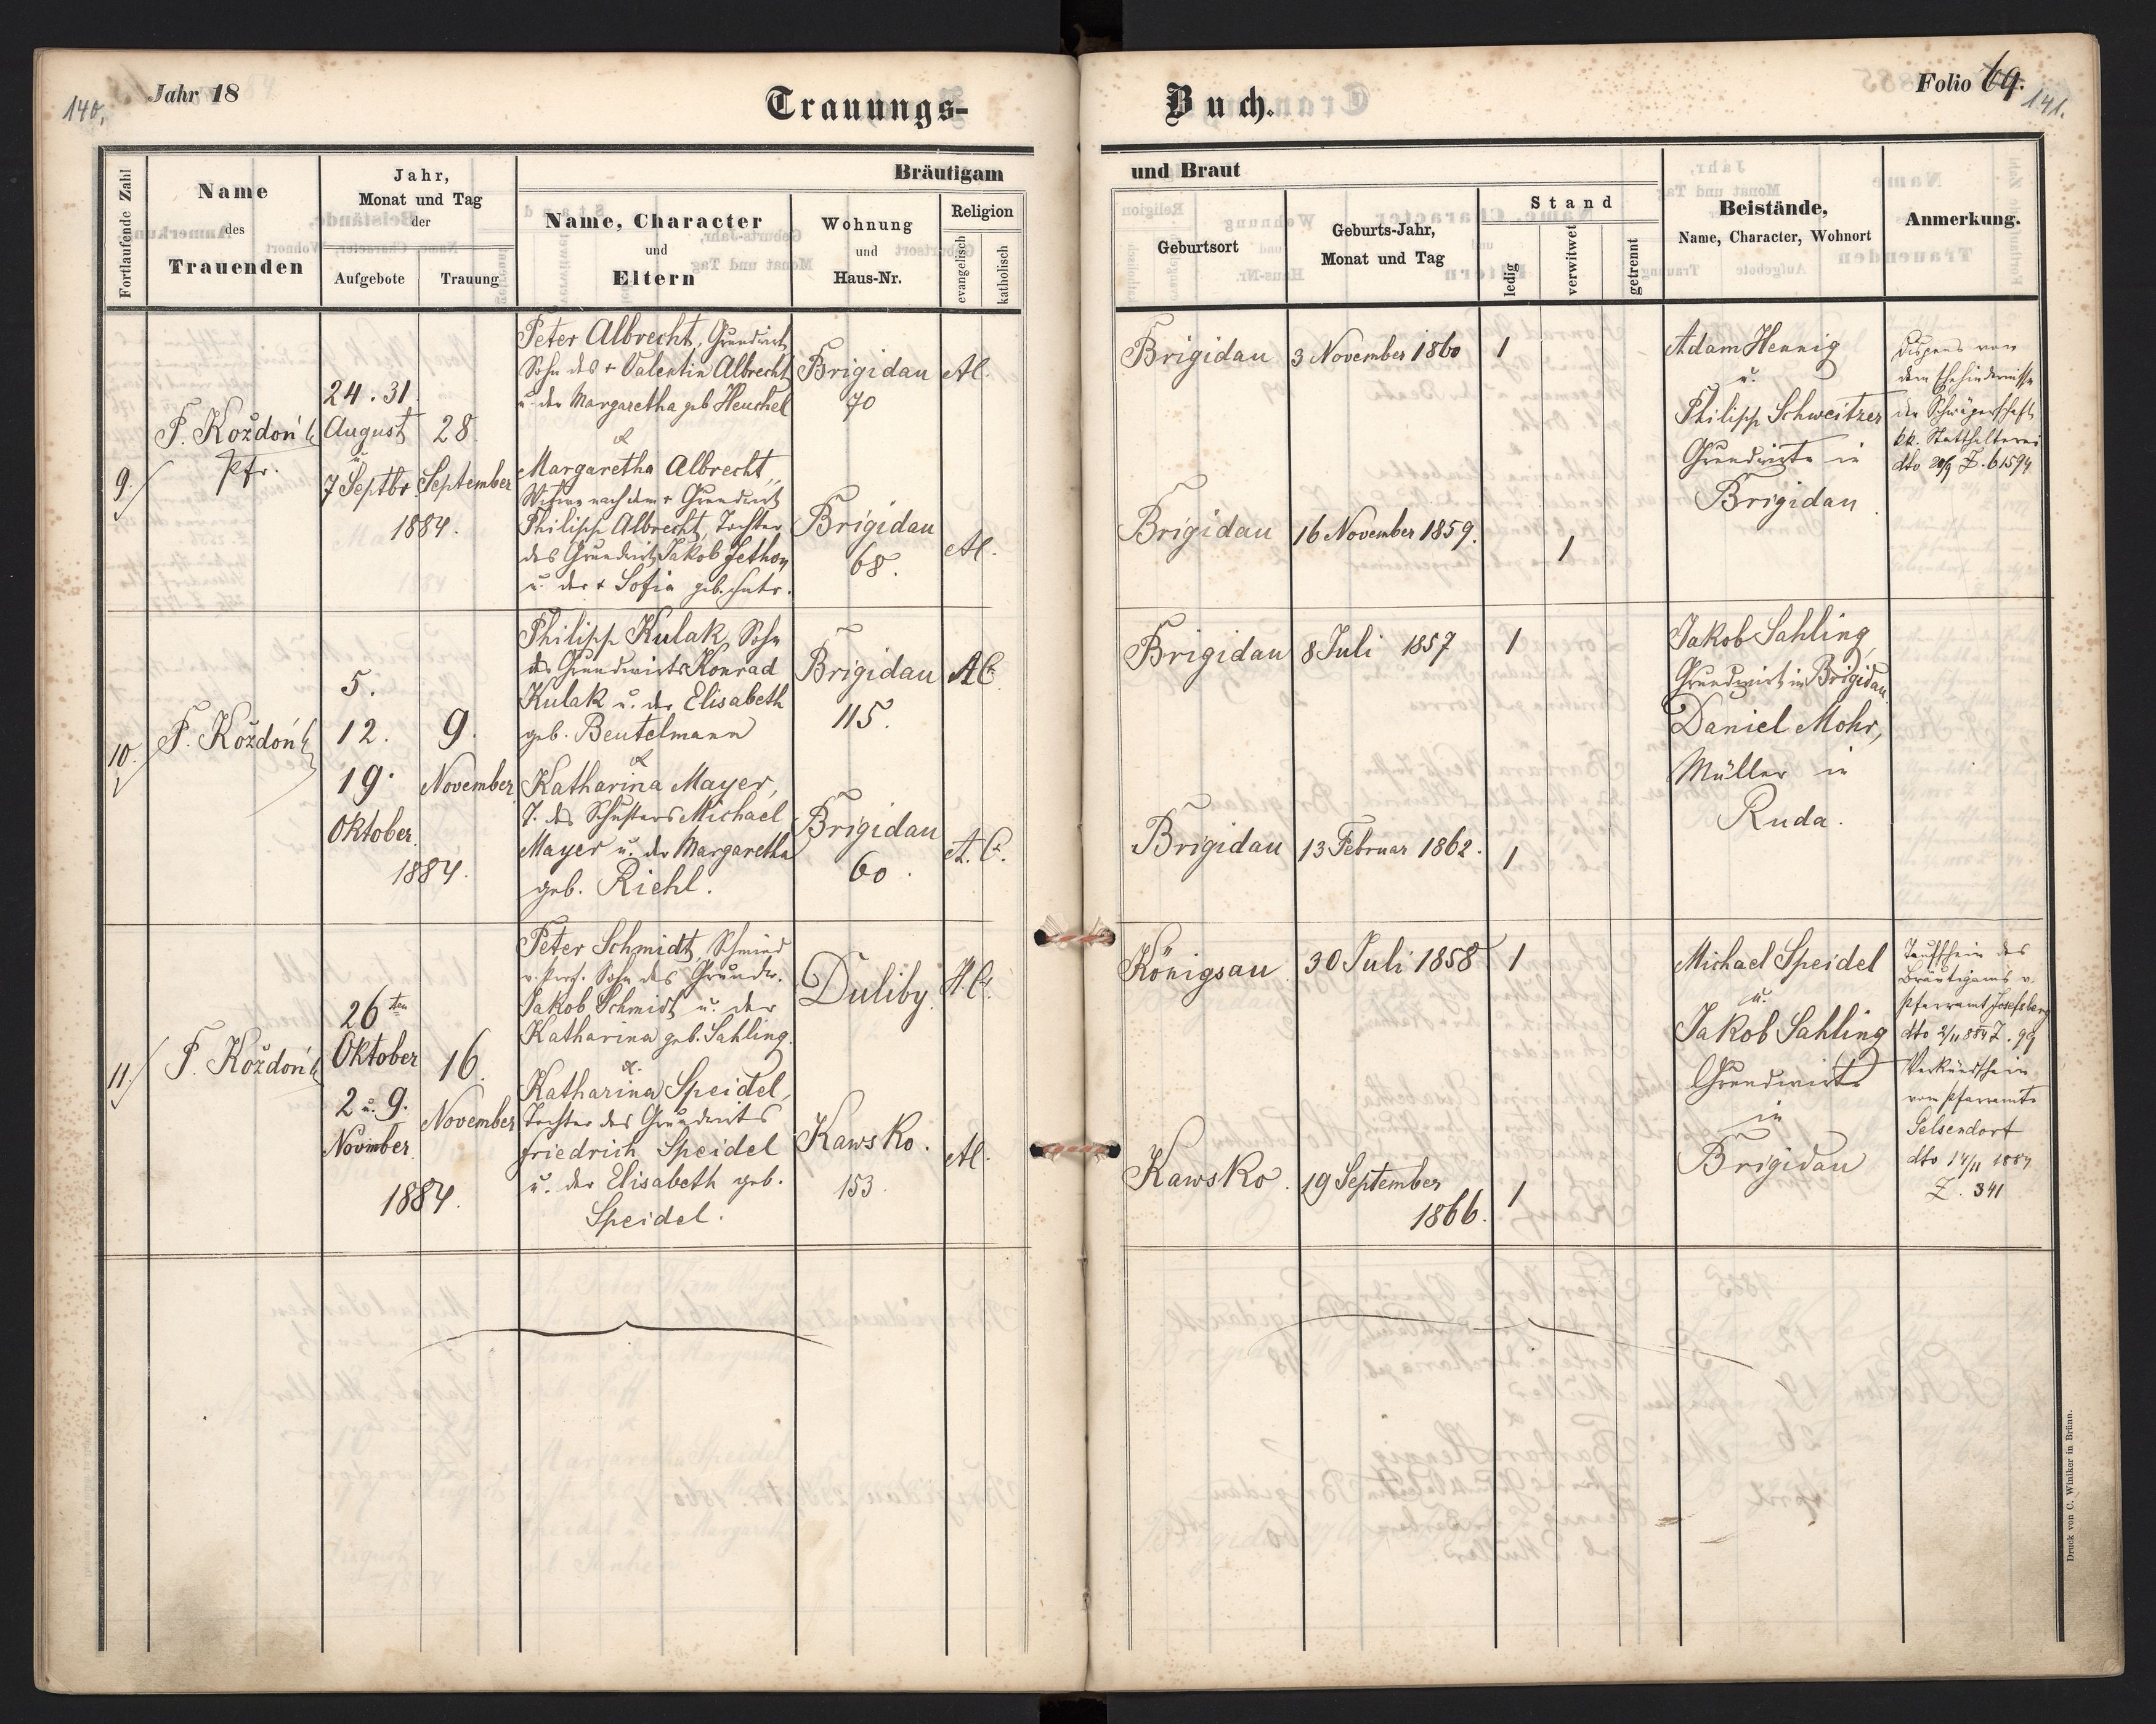 140.
Jahr 18
Trauungs-
Buch.
Folio 69.
141.
Fortlaufende Zahl
Name
des
Trauenden
Jahr,
Monat und Tag
der
Aufgebote
Trauung
Bräutigam
Name, Character
und
Eltern
Wohnung
und
Haus-Nr.
Religion
evangelisch
katholisch
und Braut
Geburtsort
Geburts-Jahr,
Monat und Tag
Stand
ledig
verwitwet
getrennt
Beistände,
Name, Character, Wohnort
Anmerkung.
9.
F. Koždoń
Pfr.
24. 31.
August
u.
7 Septbr.
28.
September
1884.
Peter Albrecht, Grundwirt
Sohn des + Valentin Albrecht
u. der Margaretha geb Heuchel
&
Margaretha Albrecht,
Witwe nach dem + Grundwirt
Philipp Albrecht, Tochter
des Grundwirts Jakob Jethon
u. der + Sofia geb.
Brigidau
70
Brigidau
68.
Al.
Al.
Brigidau
3 November 1860
1
Brigidau
16 November 1859.
1
Adam Hennig
u.
Philipp Schweitzer
Grundwirte in
Brigidau
Dispens von
dem Ehehindernisse
der Schwägerschaft
kk. Statthalterei
dto Z. 61594
10.
F. Koždoń
5.
12.
19.
Oktober
9.
November
1884.
Philipp Kulak, Sohn
des Grundwirts Konrad
Kulak u. der Elisabeth
geb. Beutelmann
&
Katharina Mayer,
T. des Schusters Michael
Mayer u. der Margaretha
geb. Riehl.
Brigidau
115.
Brigidau
60.
A.C.
A.C.
Brigidau
8 Juli 1857
1
Brigidau
13 Februar 1862.
1
Jakob Sahling,
Grundwirt in Brigidau
Daniel Mohr,
Müller in
Ruda.
11.
F. Koždoń
26ten
Oktober
2 u. 9.
November
16.
November
1884.
Peter Schmidt, Schmied
v. Prof. Sohn des Grundw.
Jakob Schmidt u. der
Katharina geb. Sahling.
&
Katharina Speidel,
Tochter des Grundwirts
Friedrich Speidel
u. der Elisabeth geb.
Speidel.
Duliby.
Kawsko.
153.
Al.
Königsau
30 Juli 1858
1
Kawsko.
19 September
1866.
1
Michael Speidel
u.
Jakob Sahling
Grundwirte
in
Brigidau
Taufschein des
Bräutigams v.
Pfarramt Josefsberg
dto 2/11 884 Z. 99
Verkündschein
vom Pfarramte
Gelsendorf
dto 14/11 1884
Z. 341
Druck von C. Winiker in Brünn.